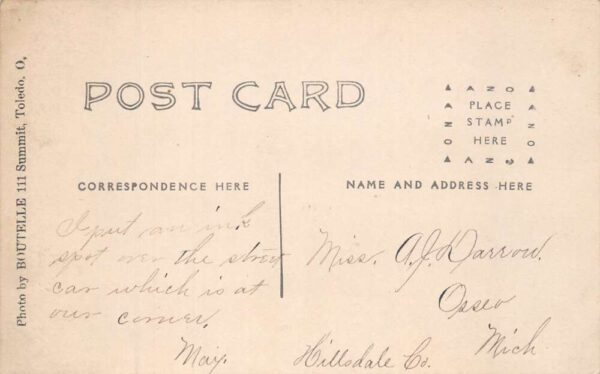 POST CARD
▲ A N O ▲
PLACE
STAMP
HERE
▲ A N O ▲
CORRESPONDENCE HERE
NAME AND ADDRESS HERE
I put an ink
spot over the street
car which is at
our corner.
May.
Miss. A. J. Darrow.
Osseo
Hillsdale Co. Mich
Photo by BOUTELLE 111 Summit, Toledo, O,